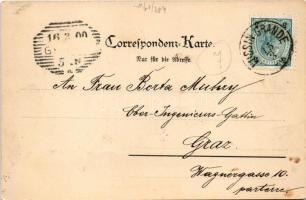 16.3.00
Correspondenz-Karte.
Nur für die Adresse.
LUSSINGRANDE
An Frau Berta
Ober-Ingenieurs-Gattin
Graz
Wagnergasse 10.
parterre